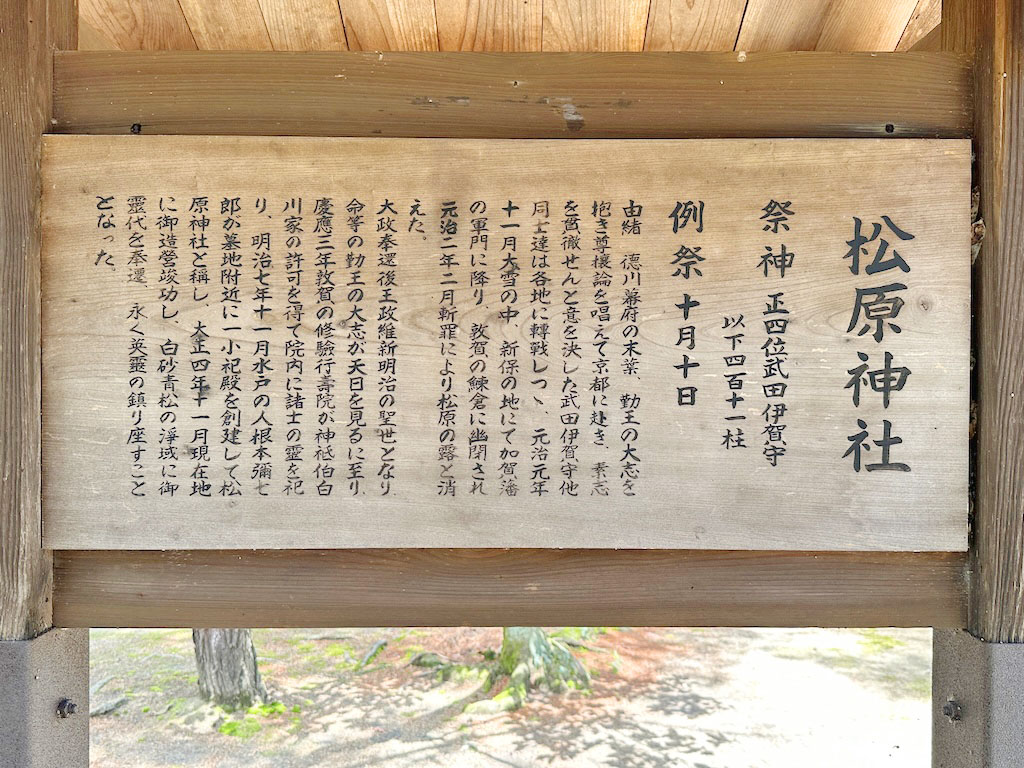 松原神社
祭神 正四位武田伊賀守
以下四百十一柱
例祭 十月十日
由緒 德川幕府の末葉、勤王の大志を
抱き尊攘論を唱えて京都に赴き、素志
を貫徹せんと意を決した武田伊賀守他
同士達は各地に轉戰しつゝ、元治元年
十一月大雪の中、新保の地にて加賀藩
の軍門に降り、敦賀の鰊倉に幽閉され
元治二年二月斬罪により松原の露と消
えた。
大政奉還後王政維新明治の聖世となり
命等の勤王の大志が天日を見るに至り
慶應三年敦賀の修驗行壽院が神祇伯白
川家の許可を得て院內に諸士の靈を祀
り、明治七年十一月水戸の人根本彌七
郎が墓地附近に一小祀殿を創建して松
原神社と稱し、大正四年十一月現在地
に御造營竣功し、白砂青松の淨域に御
靈代を奉還、永く英靈の鎮り座すこと
となった。